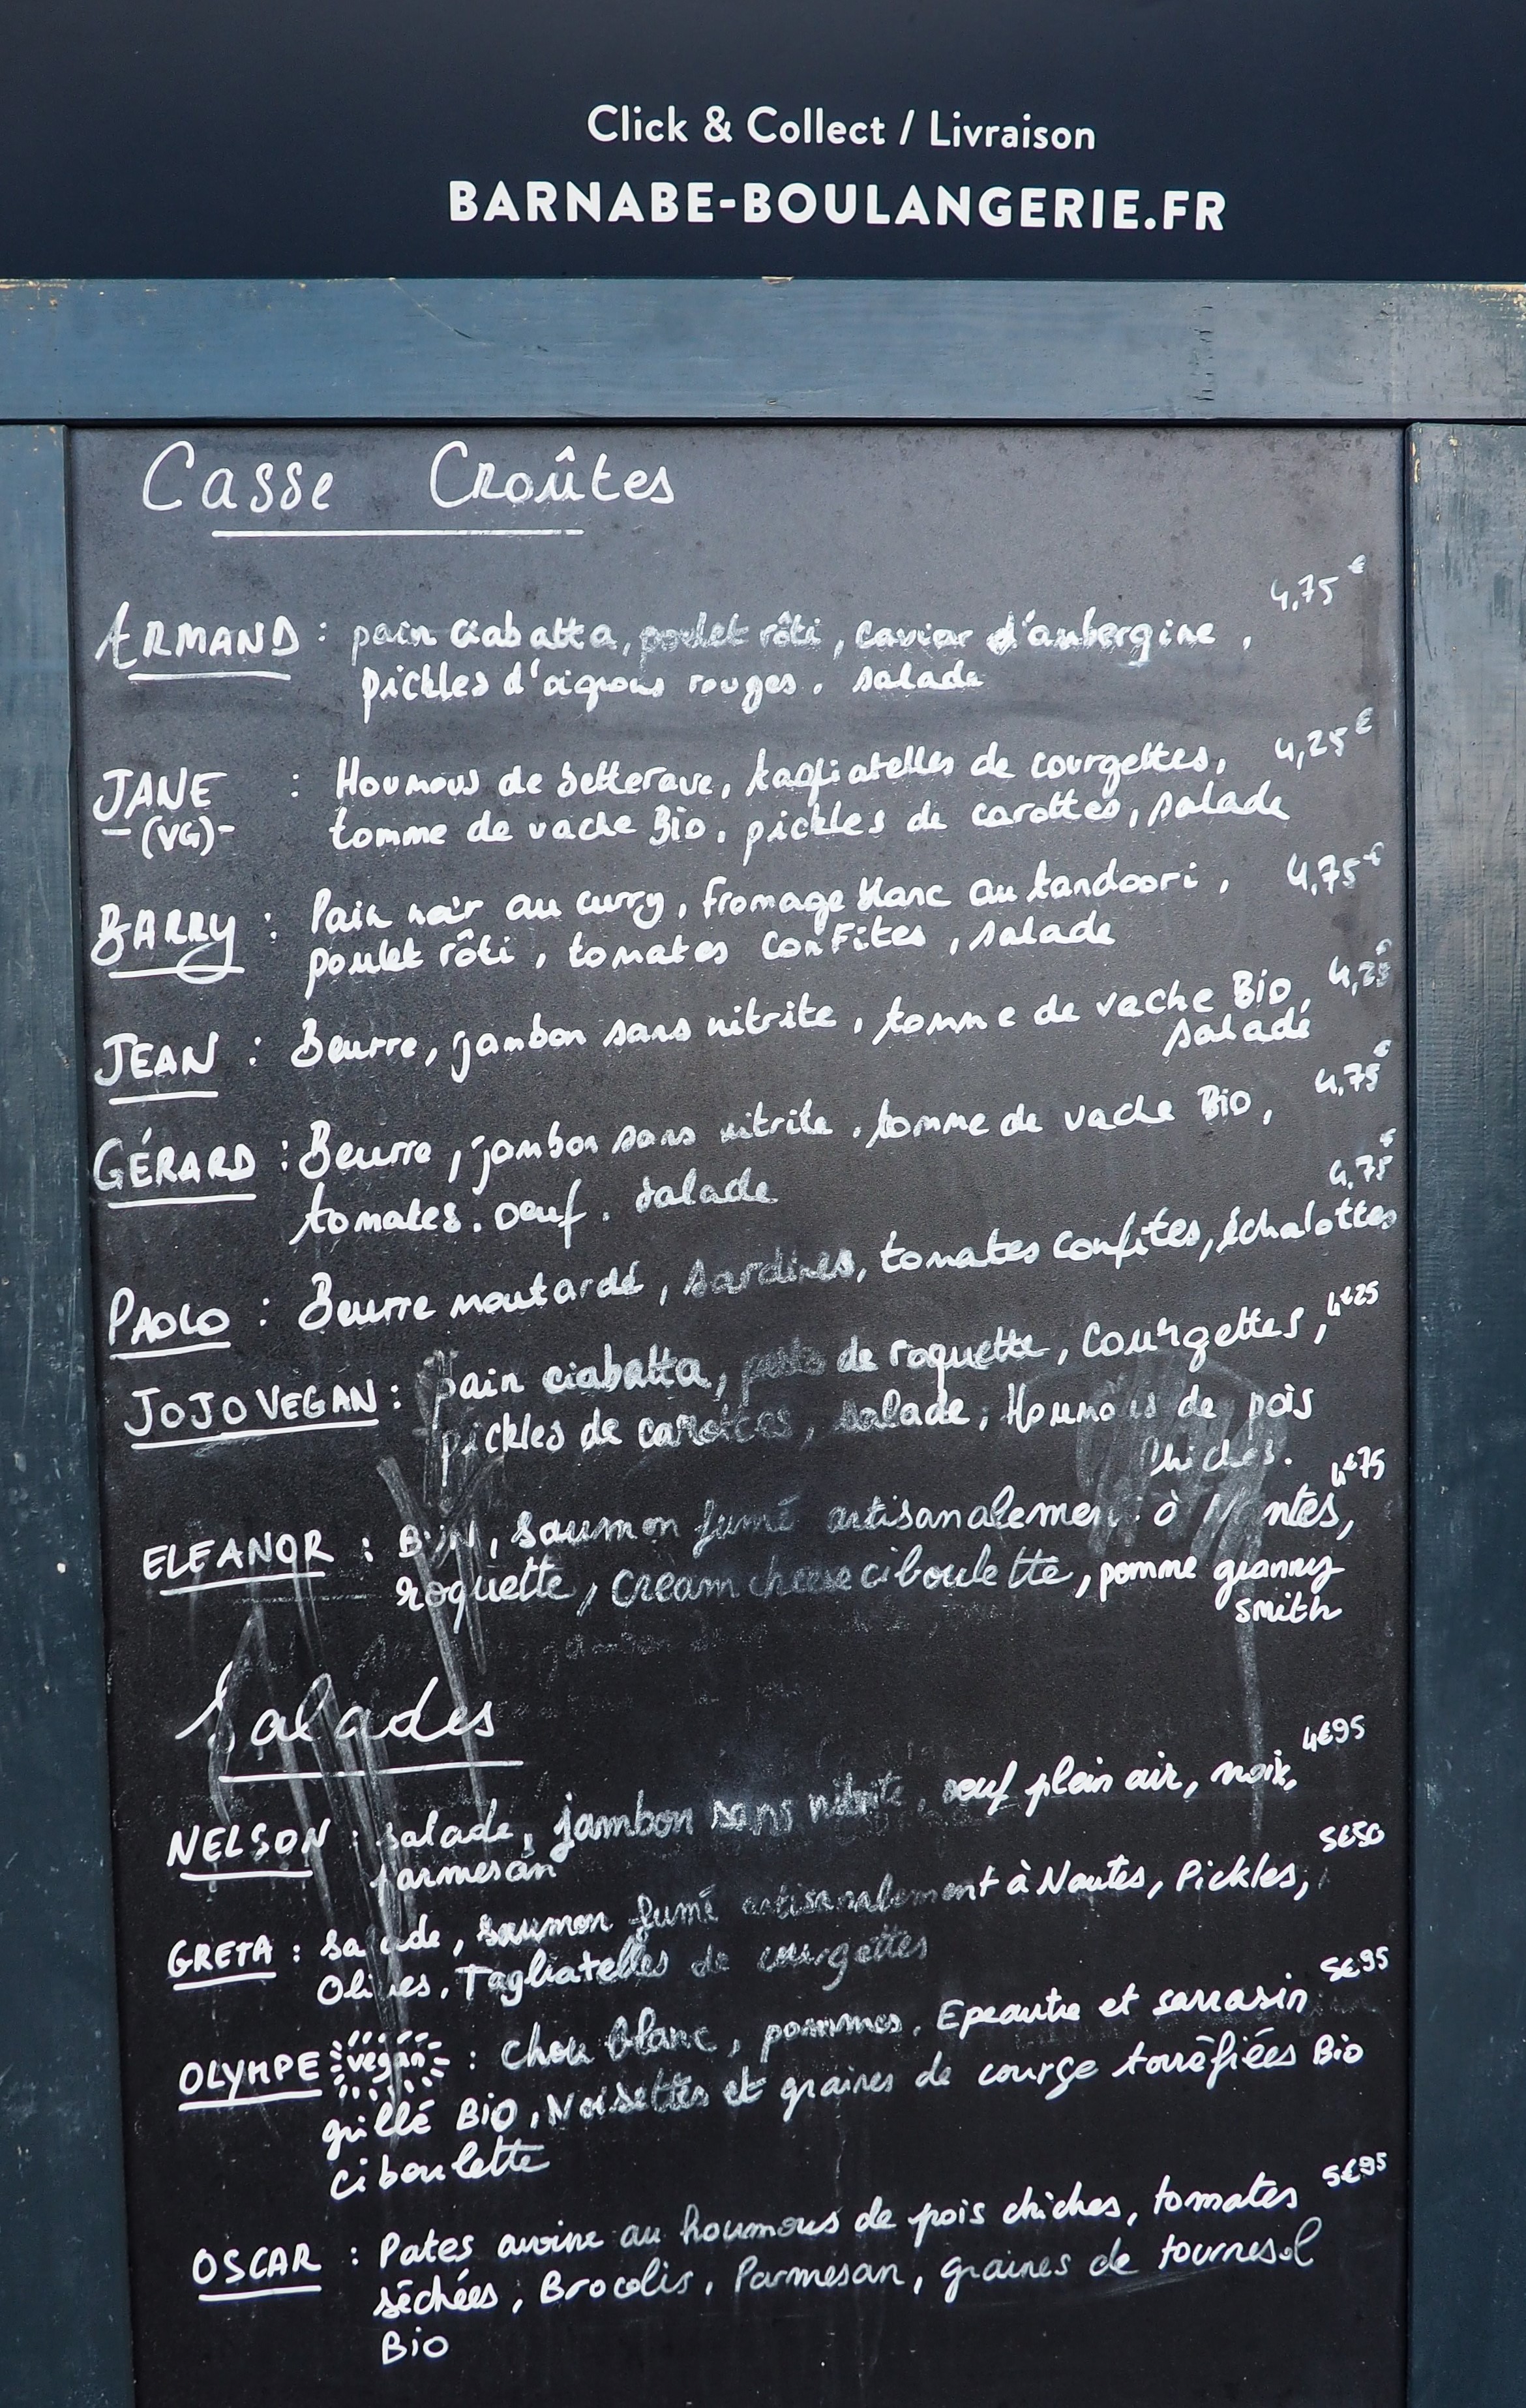 Click & Collect / Livraison
BARNABE-BOULANGERIE.FR
Casse Croûtes
4,75€
ARMAND : pain ciabatta, poulet rôti, caviar d'aubergine,
pickles d'oignons rouges. salade
JANE : Houmous de betterave, tagliatelles de courgettes, 4,25€
(VG) tomme de vache Bio, pickles de carottes, salade
BARRY : Pain noir au curry, fromage blanc au tandoori, 4,75€
poulet rôti, tomates confites, salade
JEAN : Beurre, jambon sans nitrite, tomme de vache Bio, 4,25€
salade
GÉRARD : Beurre, jambon sans nitrite, tomme de vache Bio, 4,75€
tomates. oeuf. salade
4,75€
PAOLO : Beurre moutardé, sardines, tomates confites, échalottes
JOJO VEGAN : pain ciabatta, pesto de roquette, Courgettes, 4€25
pickles de carottes, salade, Houmous de pois
chiches.
4€75
ELEANOR : BUN, saumon fumé artisanalement à Nantes,
roquette, cream cheese ciboulette, pomme granny
smith
Salades
4€95
NELSON : salade, jambon sans nitrite, oeuf plein air, noix,
parmesan
5€50
GRETA : Salade, saumon fumé artisanalement à Nantes, Pickles,
Olives, Tagliatelles de courgettes
5€95
OLYMPE vegan : chou blanc, pommes, Epeautre et sarrasin
grillé Bio, Noisettes et graines de courge torréfiées Bio
ciboulette
5€95
OSCAR : Pates avoine au houmous de pois chiches, tomates
séchées, Brocolis, Parmesan, graines de tournesol
Bio